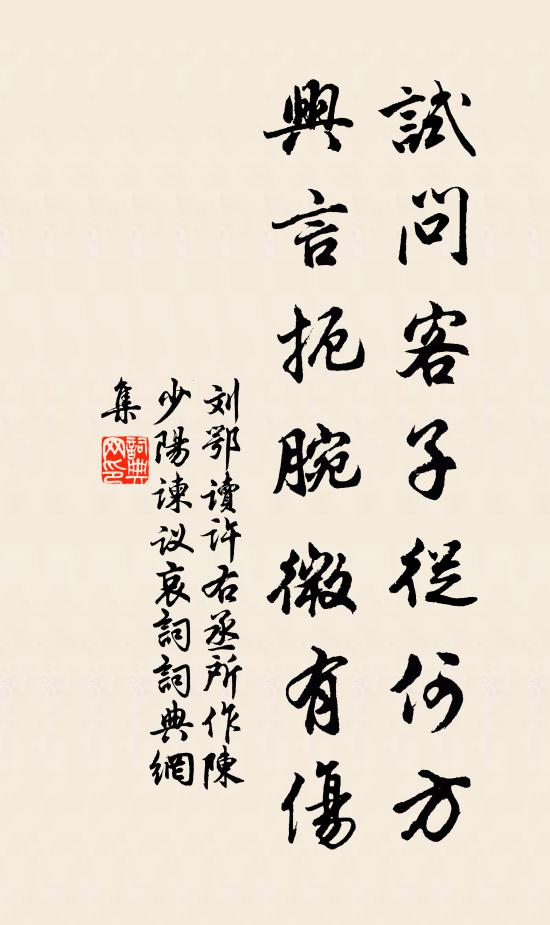 試問客子從何方
興言扼腕微有傷
刘鄂讀许右丞所作陳
少陽諫议哀詞詞典網
集
詞典網印